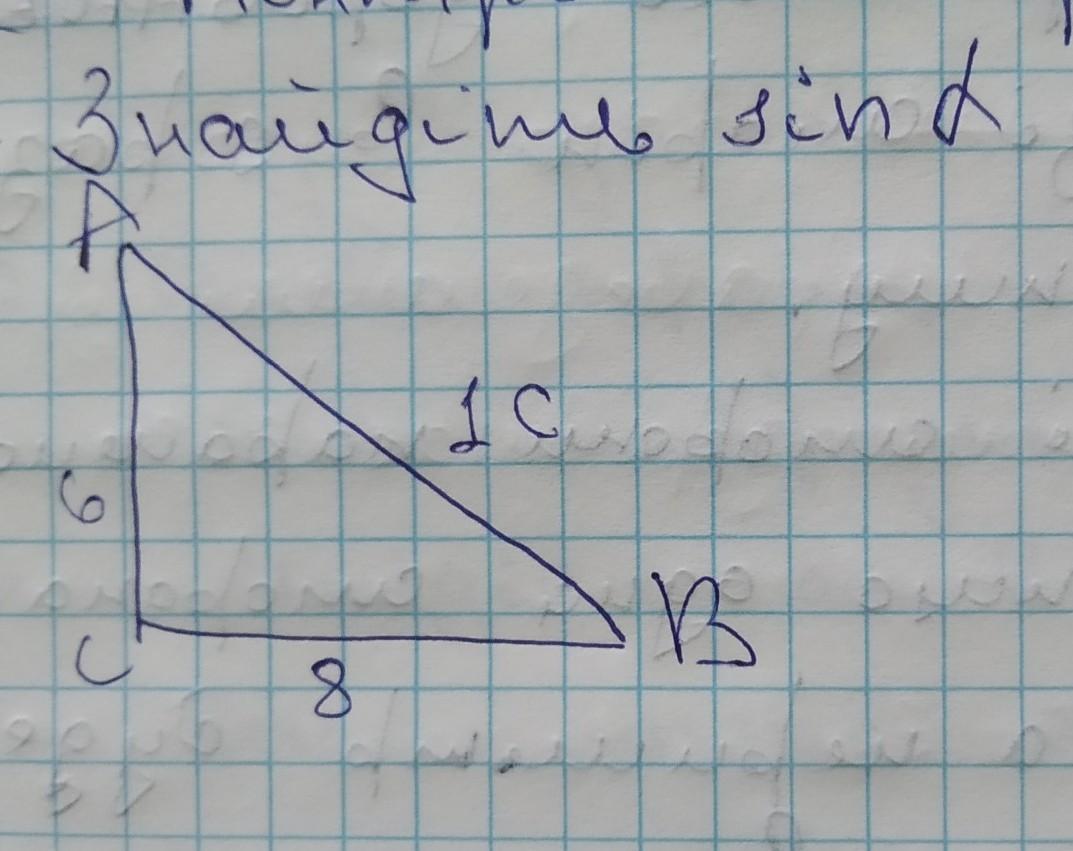 Знайдіть sin α
A
10
6
C
8
B